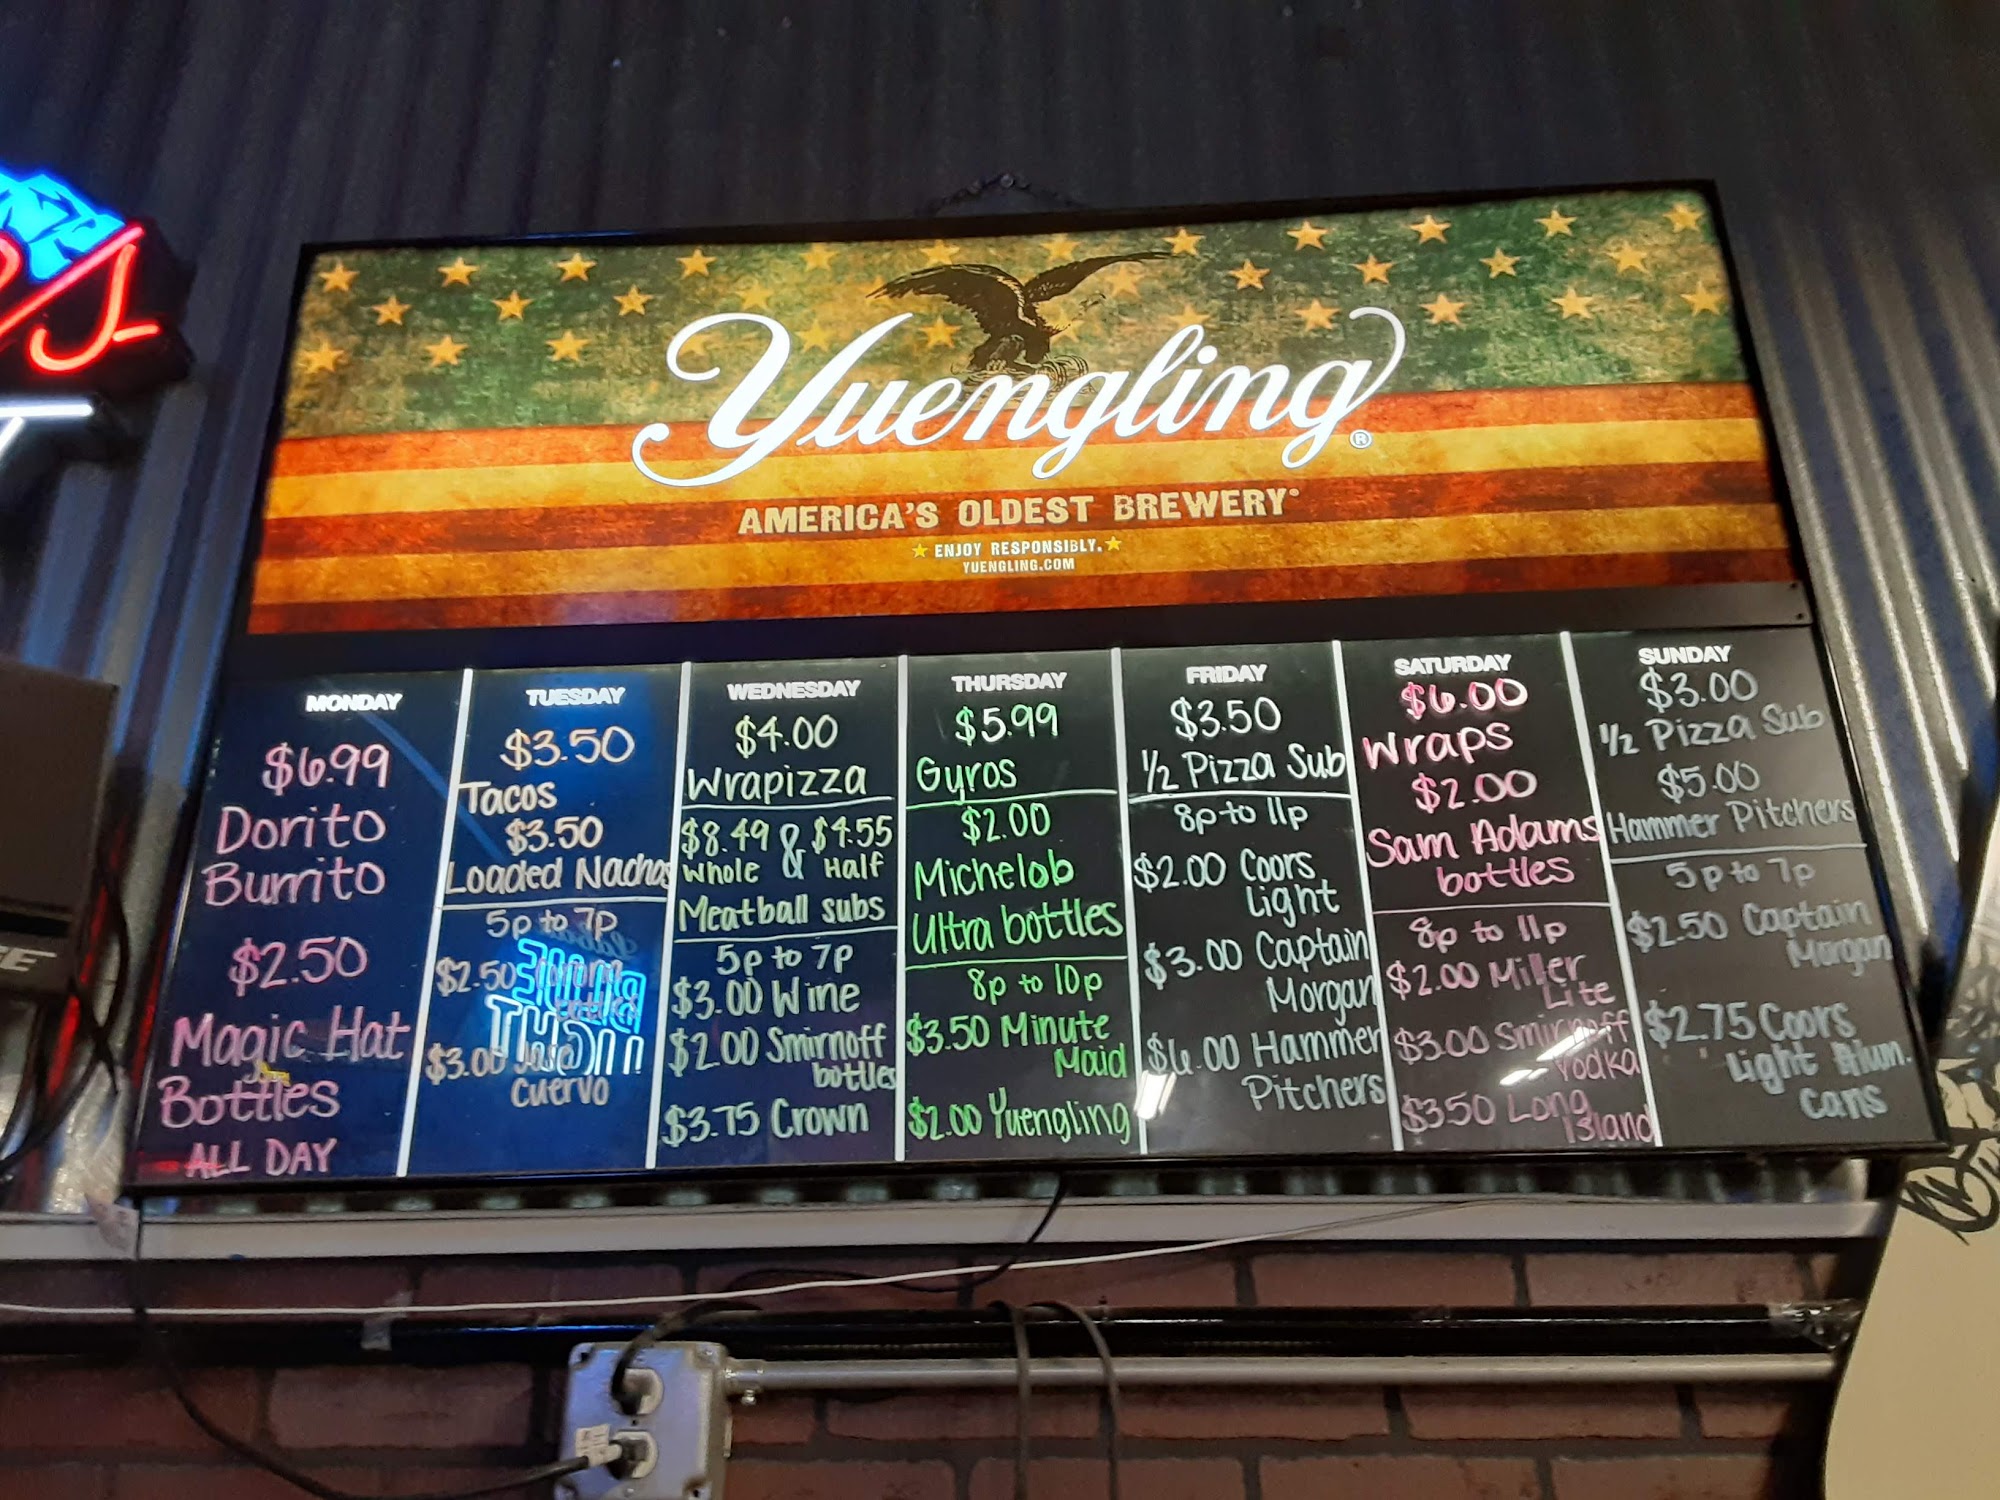 Yuengling®
AMERICA'S OLDEST BREWERY®
ENJOY RESPONSIBLY.
YUENGLING.COM
MONDAY
$6.99
Dorito
Burrito
$2.50
Magic Hat
Bottles
ALL DAY
TUESDAY
$3.50
Tacos
$3.50
Loaded Nachos
5p to 7p
$2.50
$3.00 Jose
Cuervo
WEDNESDAY
$4.00
Wrapizza
$8.49 & $4.55
Whole Half
Meatball subs
5p to 7p
$3.00 Wine
$2.00 Smirnoff
bottles
$3.75 Crown
THURSDAY
$5.99
Gyros
$2.00
Michelob
Ultra bottles
8p to 10p
$3.50 Minute
Maid
$2.00 Yuengling
FRIDAY
$3.50
1/2 Pizza Sub
8p to 11p
$2.00 Coors
Light
$3.00 Captain
Morgan
$6.00 Hammer
Pitchers
SATURDAY
$6.00
Wraps
$2.00
Sam Adams
bottles
8p to 11p
$2.00 Miller
Lite
$3.00 Smirnoff
Vodka
$3.50 Long
Island
SUNDAY
$3.00
1/2 Pizza Sub
$5.00
Hammer Pitchers
5p to 7p
$2.50 Captain
Morgan
$2.75 Coors
Light Alum.
cans